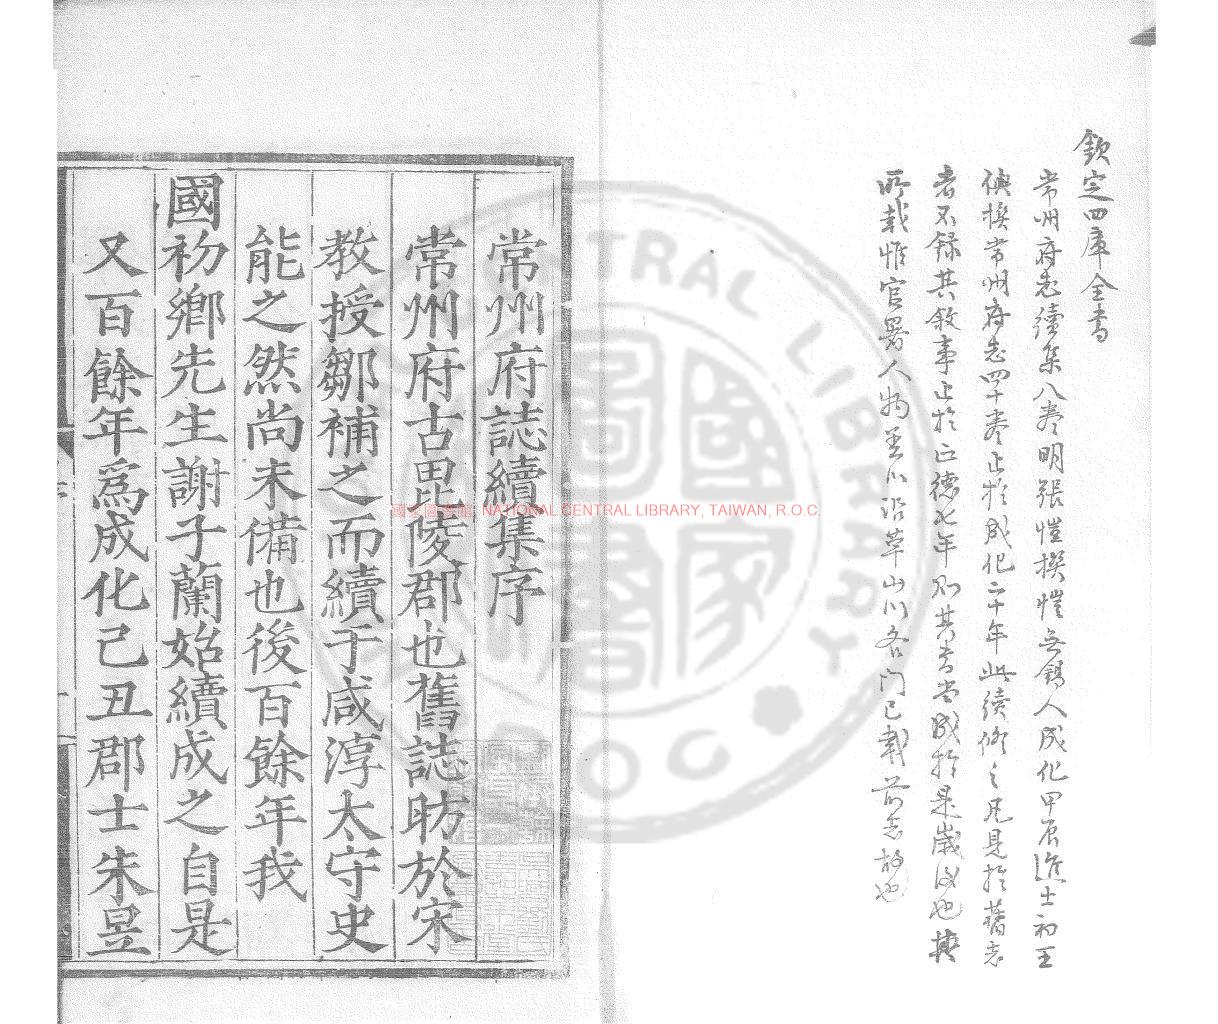 欽定四庫全書
常州府志續集八卷明張愷撰愷無錫人成化甲辰進士初王
㒜撰常州府志四十卷止於成化二十年此續修之凡見於舊志
者不錄其敘事止於正德七年則其書當成於是歲後也其
所載惟官署人物至以沿革山川各門已載前志故也
常州府誌續集序
常州府古毘陵郡也舊誌昉於宋
教授鄒補之而續于咸淳太守史
能之然尚未備也後百餘年我
國初鄉先生謝子蘭始續成之自是
又百餘年為成化己丑郡士朱昱
國家圖書館 NATIONAL CENTRAL LIBRARY, TAIWAN, R.O.C
CENTRAL LIBRARY
ROC
國家圖書